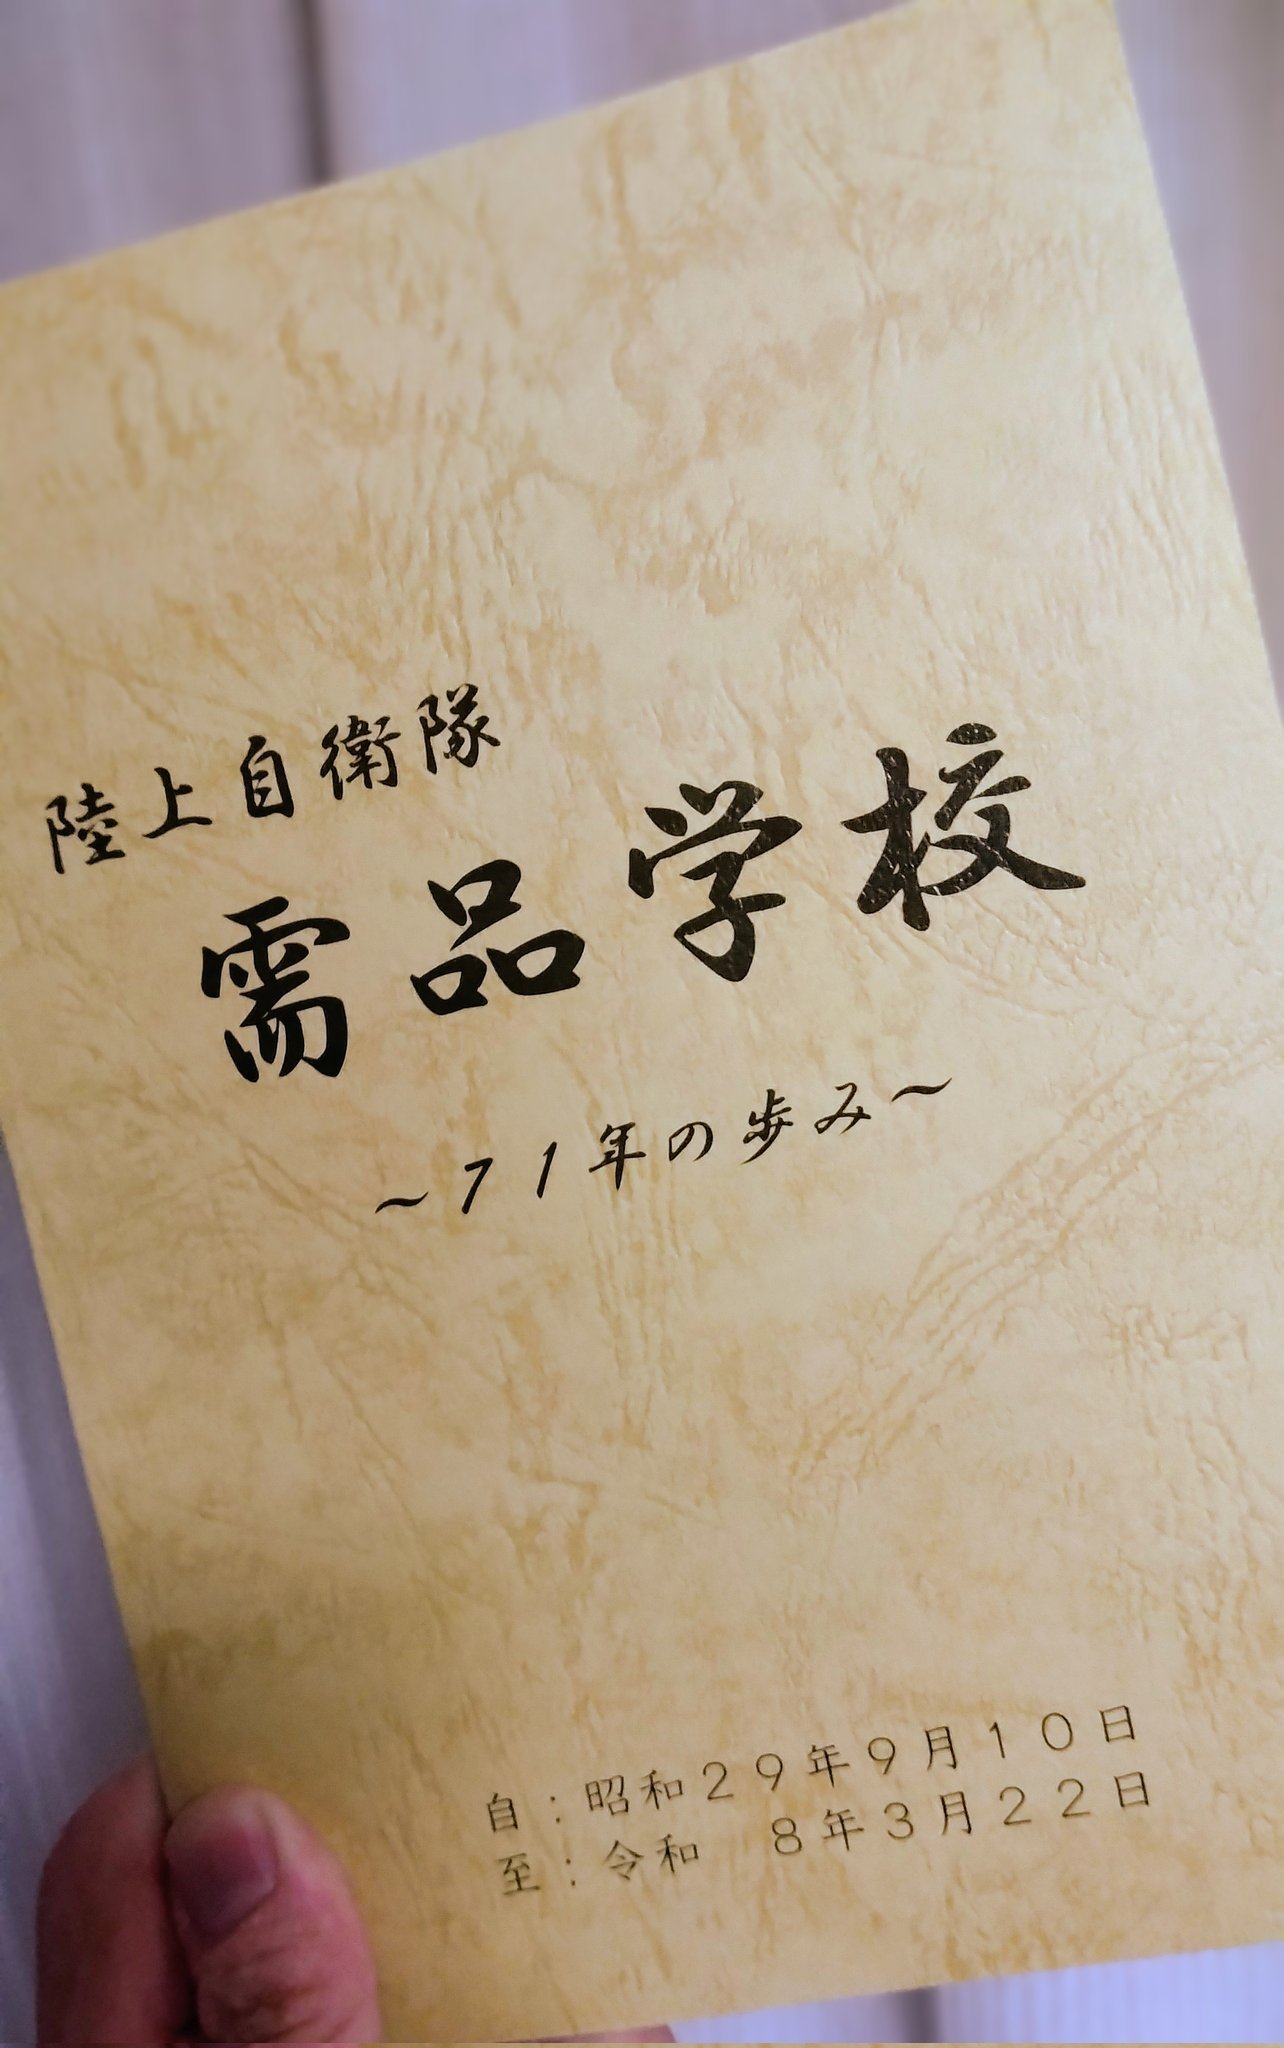 陸上自衛隊
需品学校
～７１年の歩み～
自：昭和２９年９月１０日
至：令和　８年３月２２日